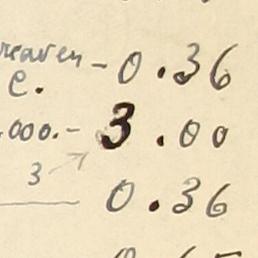 - 0.36
e.
000.- 3.00
3
0.36